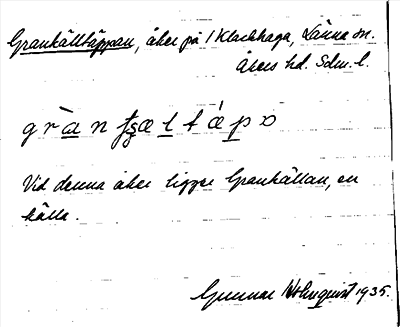 Grankälltäppan, åker på 1 Klackhaga, Länna sn.
Åkers hd. Sdm. l.
gràn fʂæltápo
Vid denna åker ligger Grankällan, en
källa.
Gunnar Holmquist 1935.